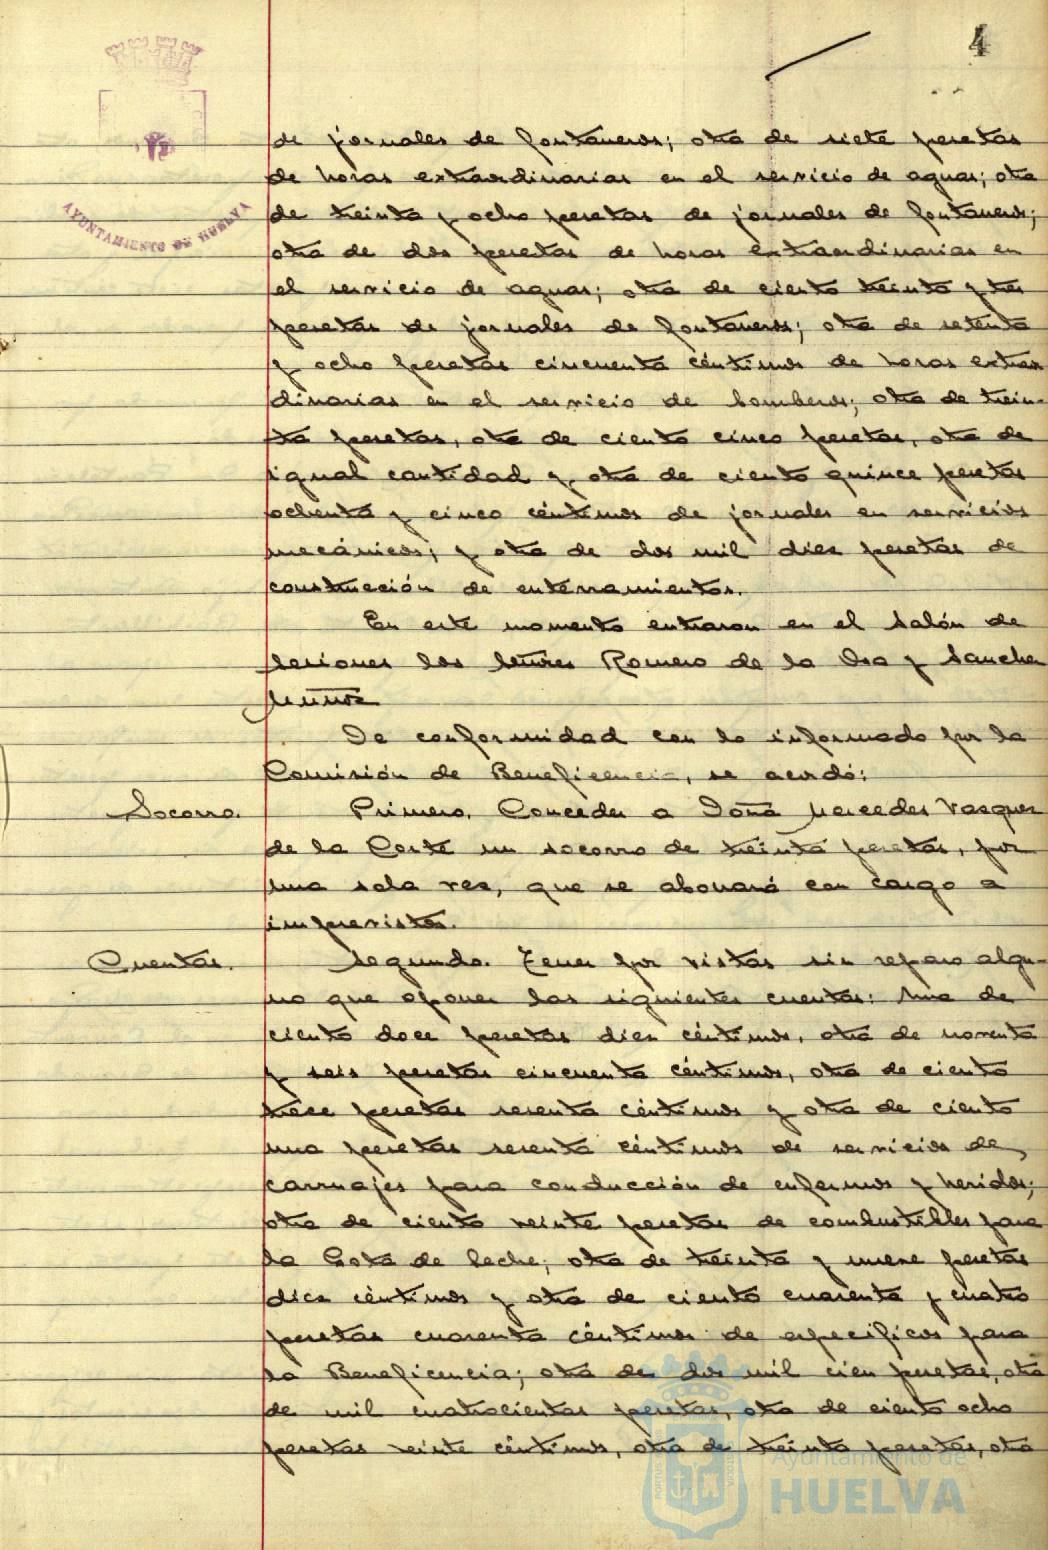 4
AYUNTAMIENTO DE HUELVA
de jornales de fontaneros; otra de siete pesetas
de horas extraordinarias en el servicio de aguas; otra
de treinta y ocho pesetas de jornales de fontaneros;
otra de dos pesetas de horas extraordinarias en
el servicio de aguas; otra de ciento treinta y tres
pesetas de jornales de fontaneros; otra de setenta
y ocho pesetas cincuenta céntimos de horas extraor
dinarias en el servicio de bomberos; otra de trein-
ta pesetas, otra de ciento cinco pesetas, otra de
igual cantidad y, otra de ciento quince pesetas
ochenta y cinco céntimos de jornales en servicios
mecánicos; y otra de dos mil diez pesetas de
construcción de enterramientos.
En este momento entraron en el salón de
sesiones los señores Romero de la Osa y Sanchez
Muñoz
De conformidad con lo informado por la
Comisión de Beneficencia, se acordó:
Socorro. Primero. Conceder a Doña Mercedes Vazquez
de la Corte un socorro de treinta pesetas, por
una sola vez, que se abonará con cargo a
imprevistos.
Cuentas. Segundo. Tener por vistas sin reparo algu-
no que oponer las siguientes cuentas: Una de
ciento doce pesetas diez céntimos, otra de noventa
y seis pesetas cincuenta céntimos, otra de ciento
trece pesetas sesenta céntimos y otra de ciento
una pesetas sesenta céntimos de servicios de
carruajes para conducción de enfermos y heridos;
otra de ciento veinte pesetas de combustibles para
la Gota de leche; otra de treinta y nueve pesetas
diez céntimos y otra de ciento cuarenta y cuatro
pesetas cuarenta céntimos de especificos para
la Beneficencia; otra de dos mil cien pesetas, otra
de mil cuatrocientas pesetas, otra de ciento ocho
pesetas veinte céntimos, otra de treinta pesetas, otra
Ayuntamiento de
HUELVA